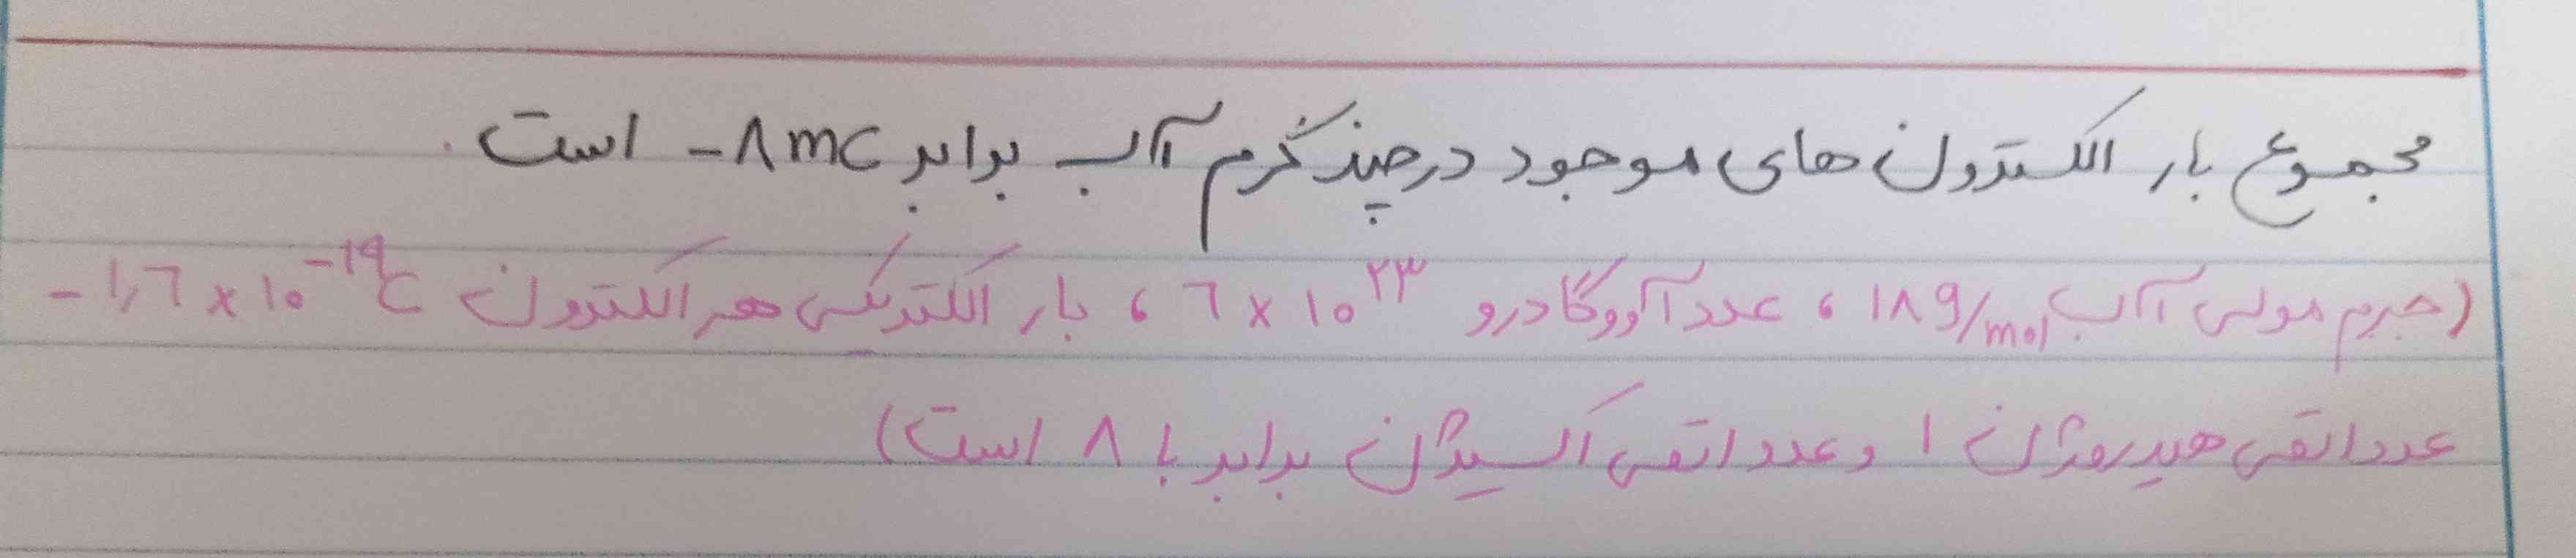 مجموع بار الکترون های موجود در چند گرم آب برابر -۸mc است .
(جرم مولی آب ۱۸g/mol ، عدد آووگادرو ۶×۱۰^۲۳ ، بار الکتریکی هر الکترون -۱,۶×۱۰^-۱۹c
عدد اتمی هیدروژن ۱ و عدد اتمی اکسیژن برابر با ۸ است)